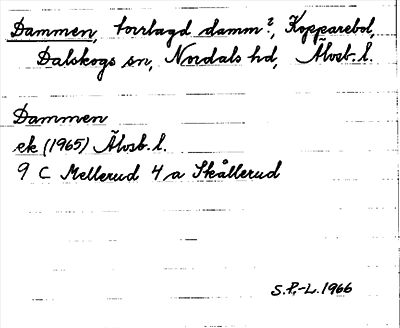 Dammen, torrlagd damm?, Kopparebol,
Dalskogs sn, Nordals hd, Älvsb. l.
Dammen
ek (1965) Älvsb. l.
9 C Mellerud 4 a Skållerud
S.P.-L. 1966